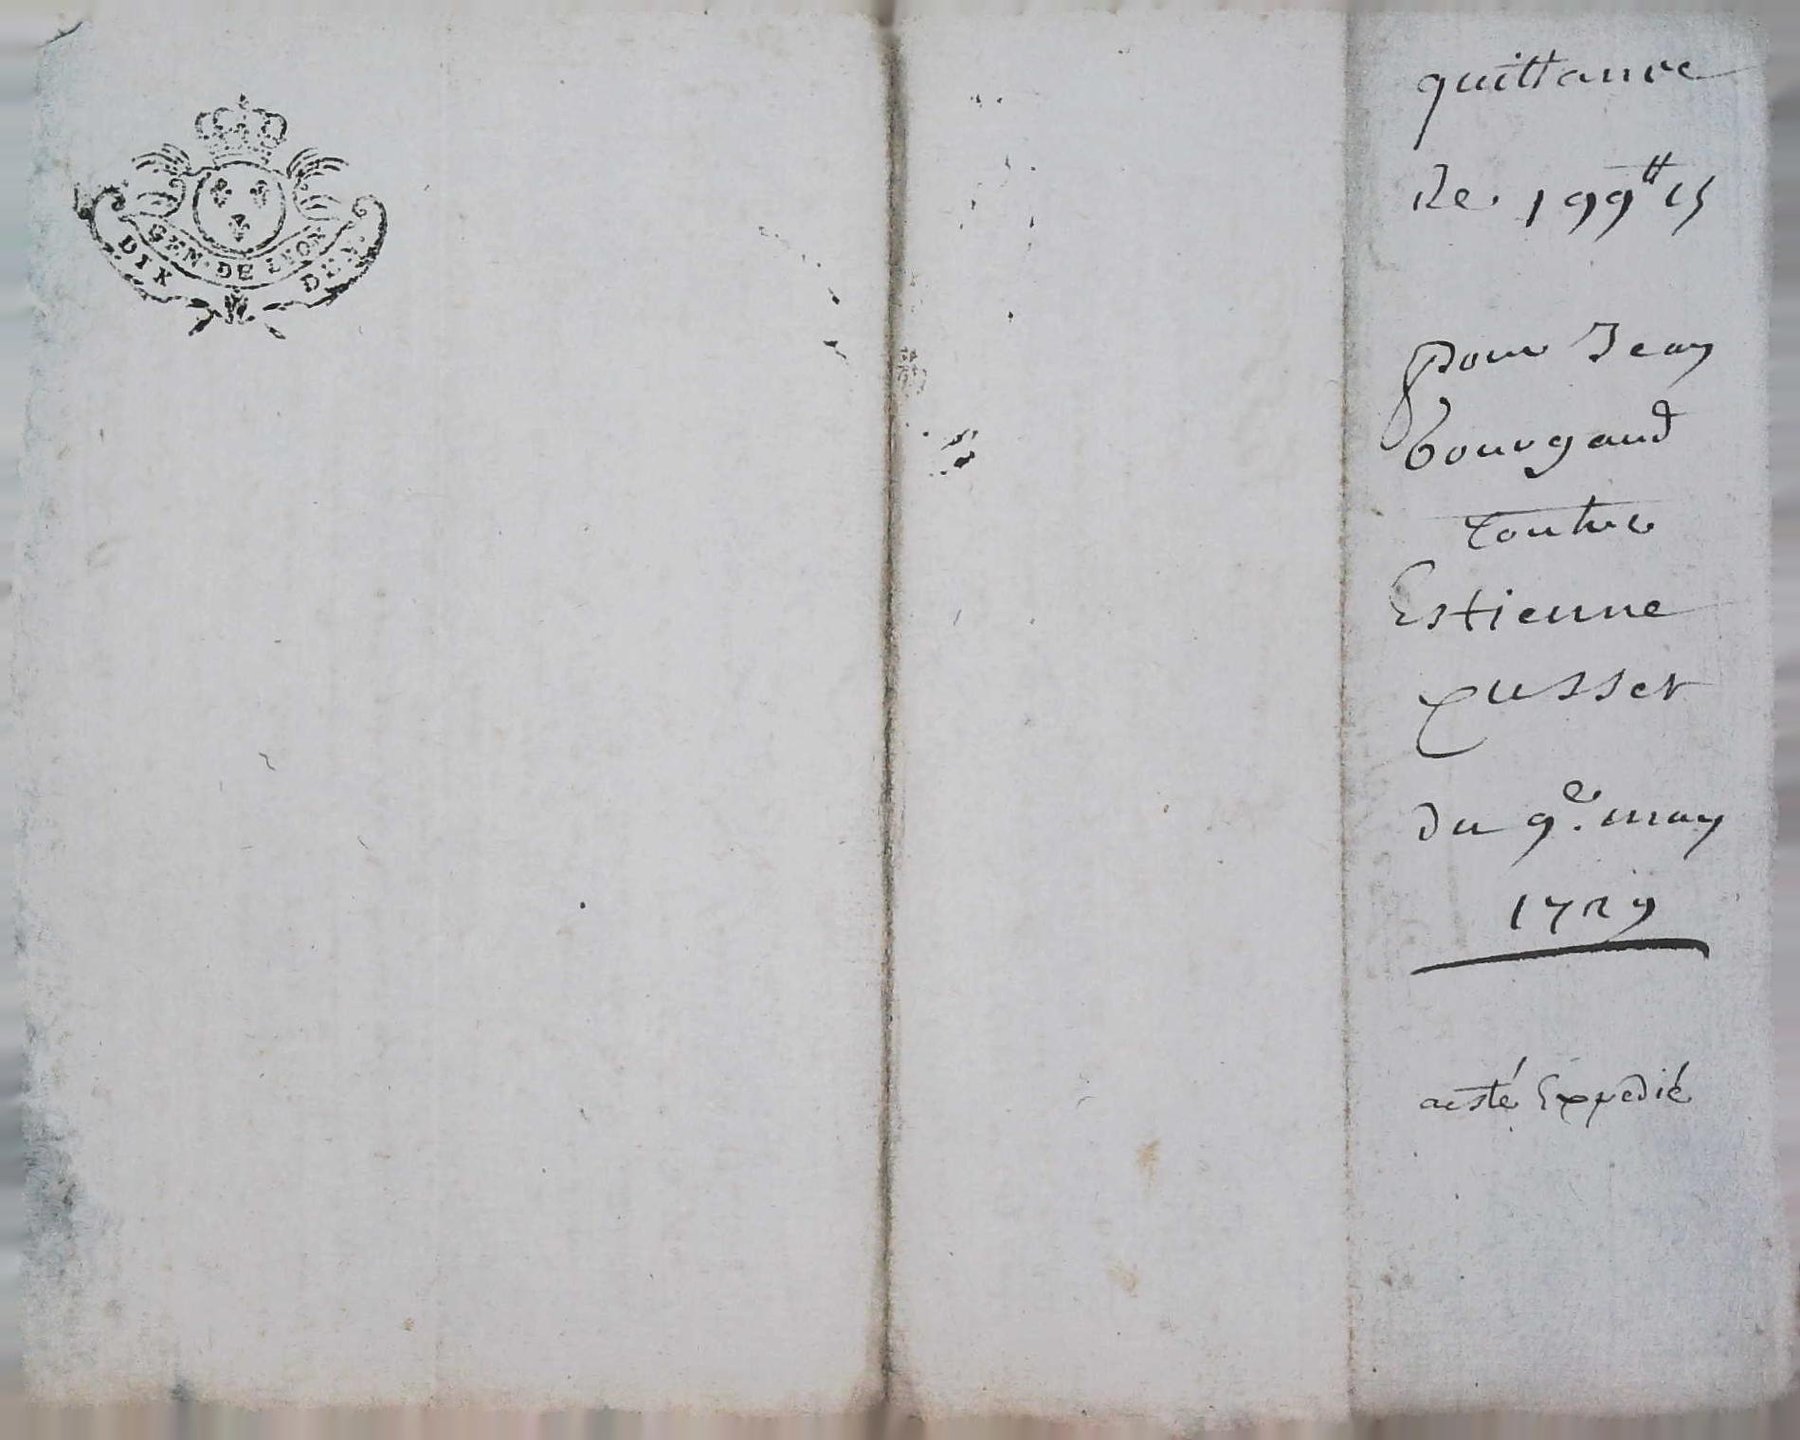 GEN · DE LYON
DIX DEN.
quittance
De 199tt 15
pour Jean
bourgaud
Contre
Estienne
Cusset
du 9e. may
1729
aesté Expedié